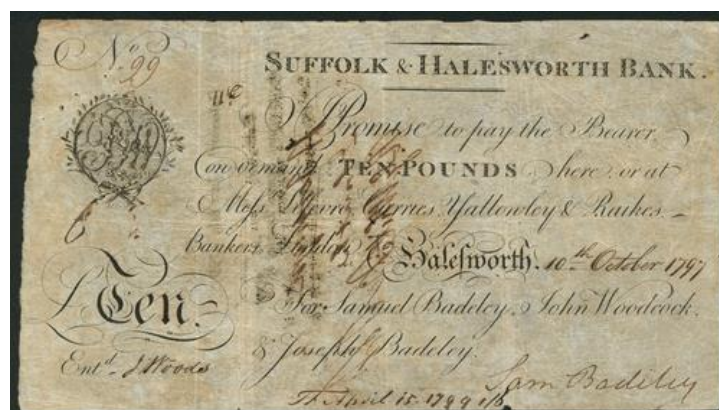 No. 99
SUFFOLK & HALESWORTH BANK.
I Promise to pay the Bearer
on demand TEN POUNDS here or at
Messrs Curries Yallowley & Raikes
Bankers London Halesworth. 10th October 1797
£ Ten. For Samuel Badeley, John Woodcock,
& Joseph Badeley.
Entd. J Woods
Sam Badeley
April 15 1799